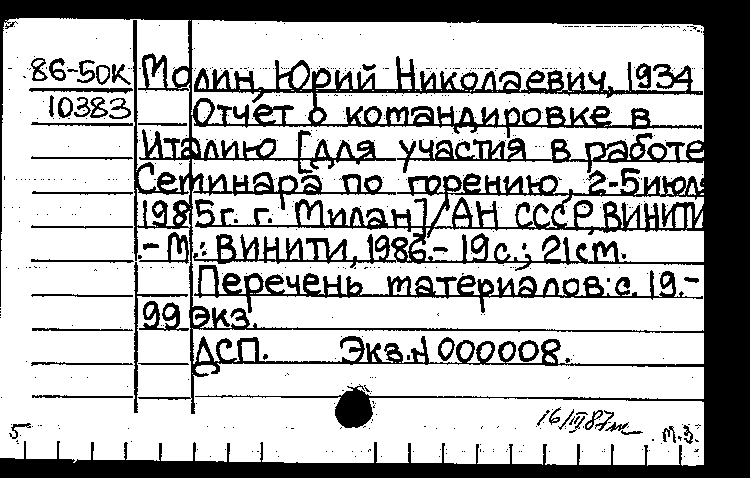 86-50К Молин, Юрий Николаевич, 1934
10383 Отчет о командировке в
Италию [для участия в работе
Семинара по горению, 2-5 июля
1985г. г. Милан]/АН СССР, ВИНИТИ
.- М.: ВИНИТИ, 1986.- 19с.; 21см.
Перечень материалов: с. 19.-
99 экз.
ДСП. Экз.N 000008.
16/III 87
5 м.З.